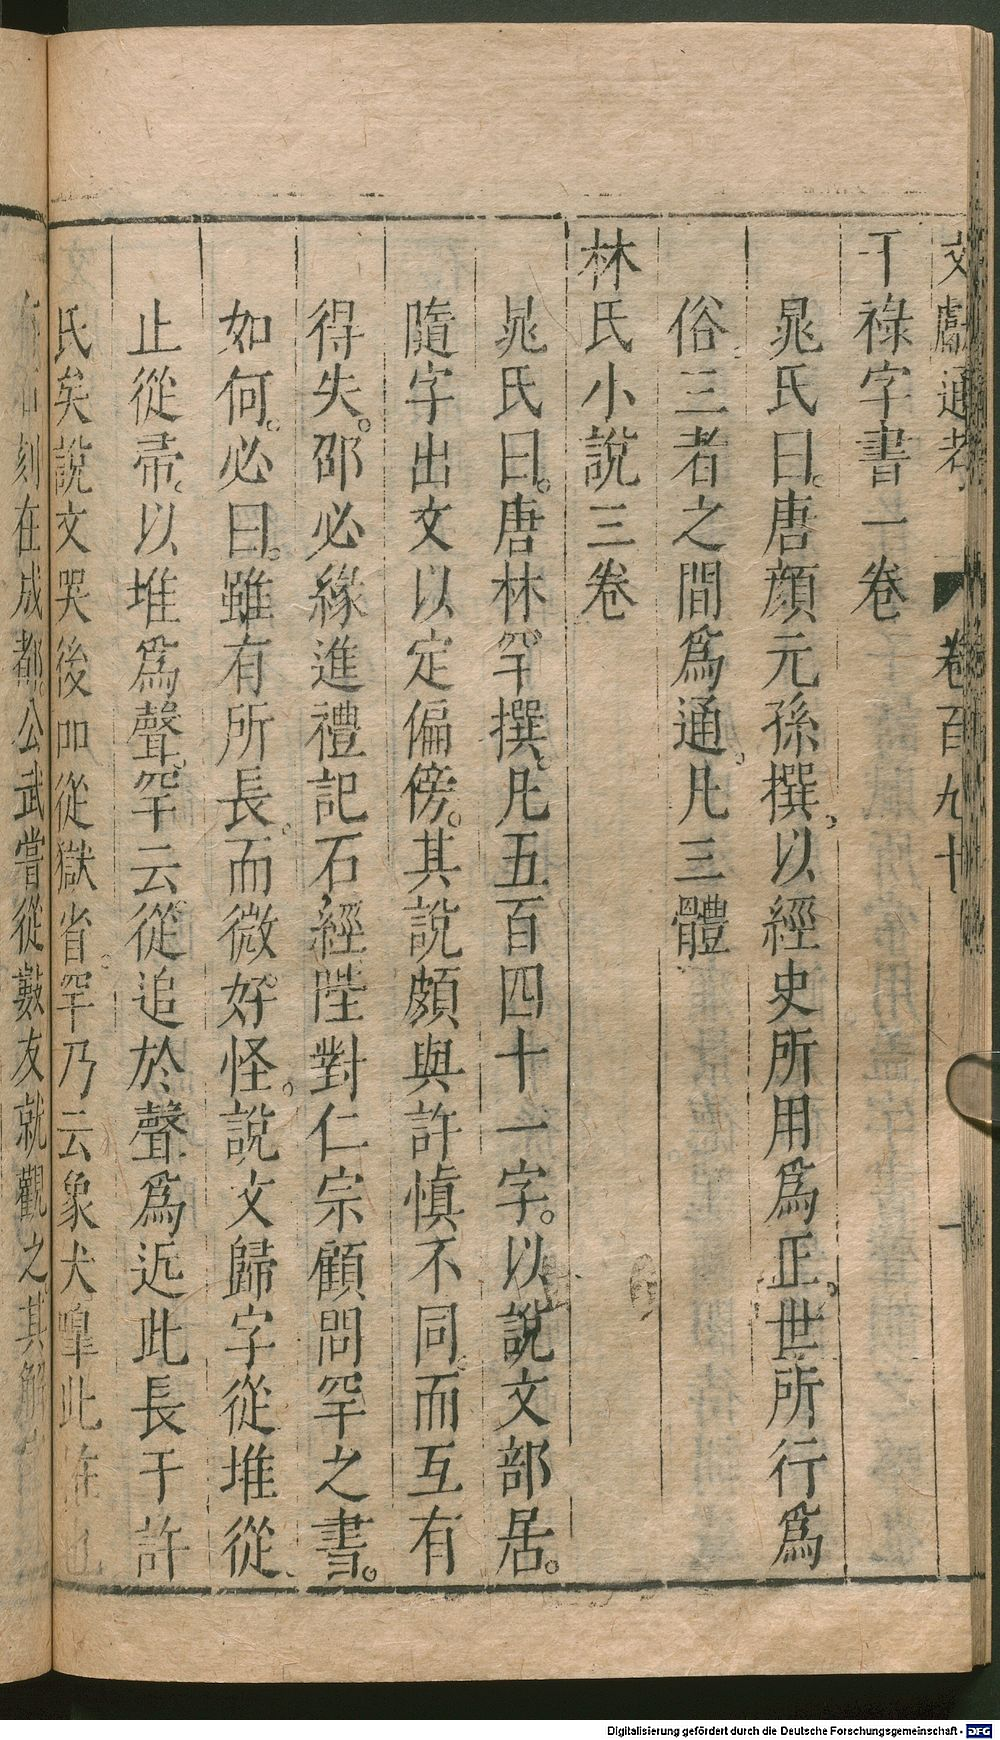 文獻通考 卷百九十 一
干祿字書一卷
晁氏曰。唐顏元孫撰。以經史所用爲正。世所行爲
俗。三者之間爲通。凡三體
林氏小說三卷
晁氏曰。唐林罕撰。凡五百四十一字。以說文部居。
隨字出文以定偏傍。其說頗與許愼不同。而互有
得失。邵必緣進禮記石經陛對仁宗顧問罕之書。
如何。必曰。雖有所長。而微好怪。說文歸字從堆從
止從帚。以堆爲聲。罕云。從追於聲爲近此長于許
氏矣說文哭後卽從獄省。罕乃云象犬嘷此
刻在成都。公武嘗從數友就觀之。其解
Digitalisierung gefördert durch die Deutsche Forschungsgemeinschaft - DFG